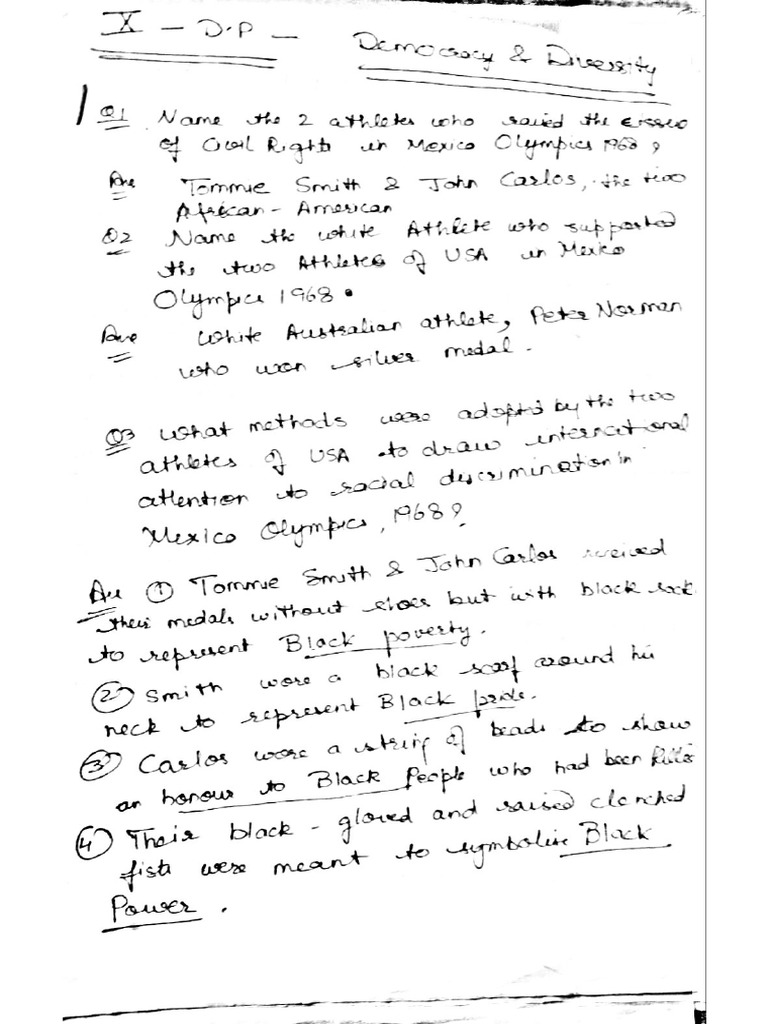 X - D.P - Democracy & Diversity
Q1 Name the 2 athletes who raised the issue
of Civil Rights in Mexico Olympics 1968?
Ans Tommie Smith & John Carlos, the two
African-American
Q2 Name the white Athlete who supported
the two Athletes of USA in Mexico
Olympics 1968.
Ans White Australian athlete, Peter Norman
who won silver medal.
Q3 What methods were adopted by the two
athletes of USA to draw international
attention to racial discrimination in
Mexico Olympics, 1968?
Ans ① Tommie Smith & John Carlos received
their medals without shoes but with black sock
to represent Black poverty.
② Smith wore a black scarf around his
neck to represent Black pride.
③ Carlos wore a string of beads to show
an honour to Black People who had been killed
④ Their black-gloved and raised clenched
fists were meant to symbolise Black
Power.